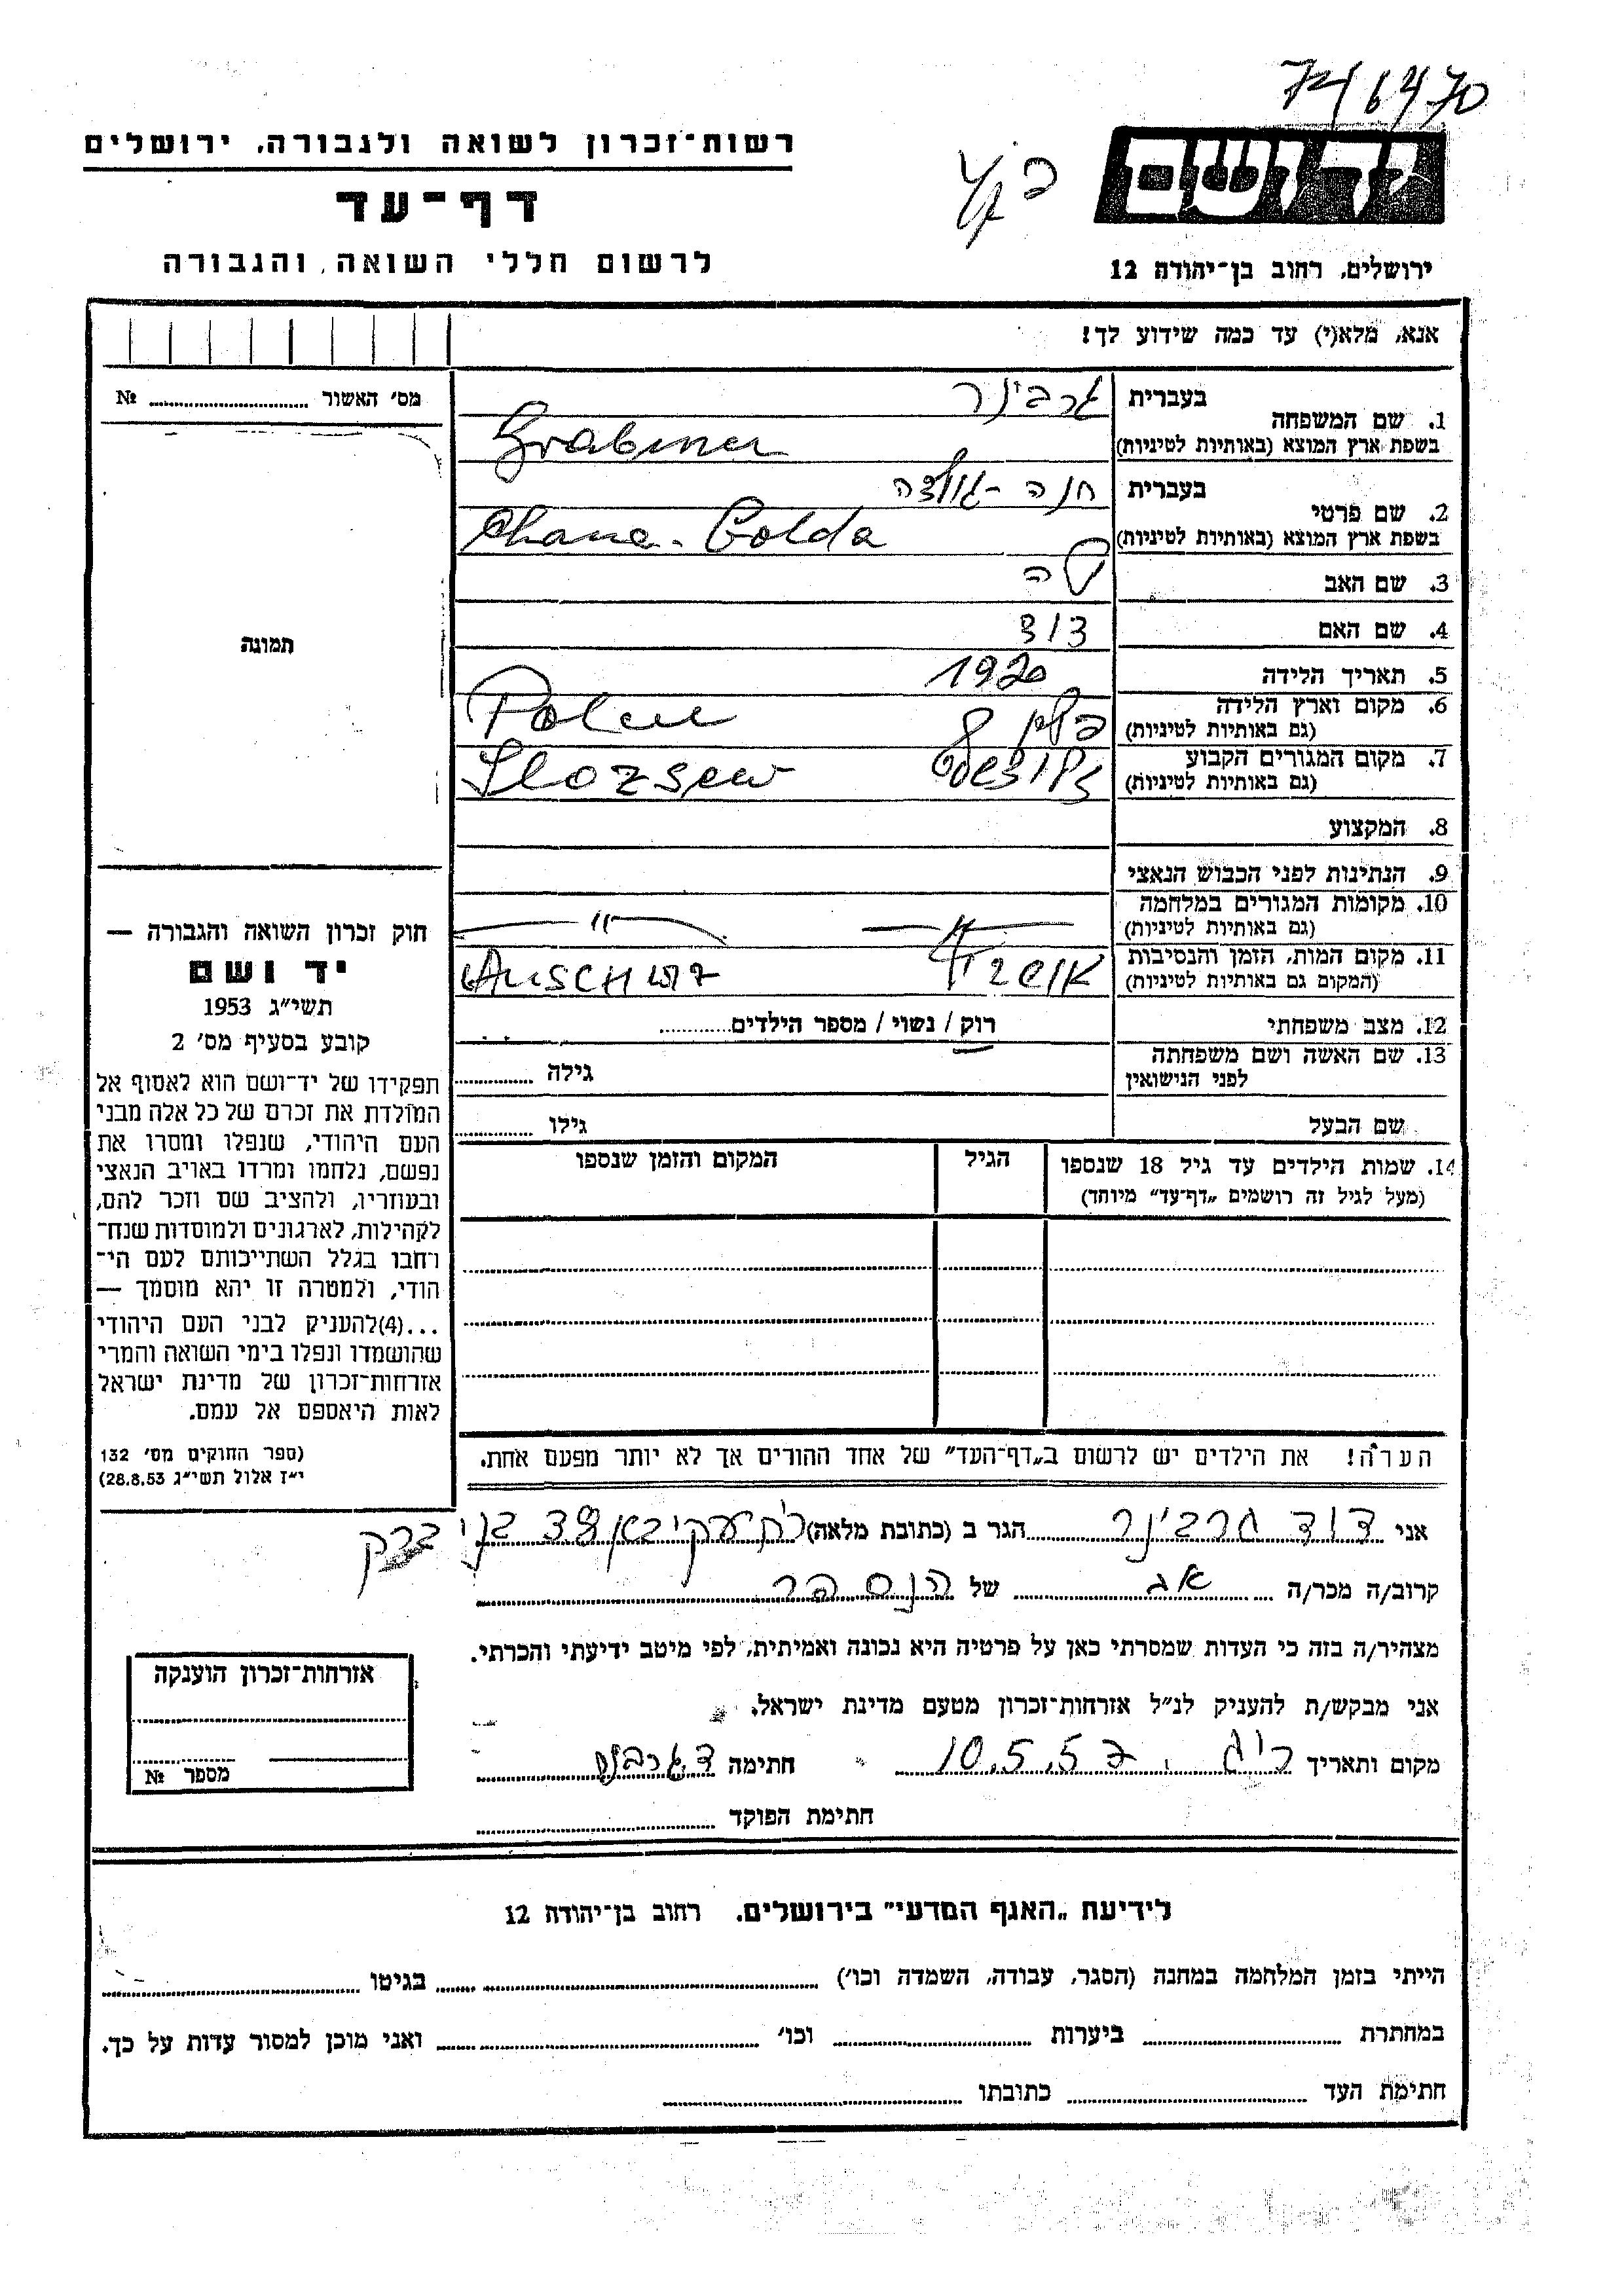 746470
רשות־זכרון לשואה ולגבורה, ירושלים
יד ושם
דף־עד
לרשום חללי השואה והגבורה
ירושלים, רחוב בן־יהודה 12
אנא, מלא(י) עד כמה שידוע לך!
מס׳ האשור № 
1. שם המשפחה
בעברית גרבינר
בשפת ארץ המוצא (באותיות לטיניות) Grabiner
2. שם פרטי
בעברית חנה-גולדה
בשפת ארץ המוצא (באותיות לטיניות) Chana-Golda
3. שם האב
4. שם האם
5. תאריך הלידה 1920
6. מקום וארץ הלידה
(גם באותיות לטיניות) פולין Polen
7. מקום המגורים הקבוע
(גם באותיות לטיניות)
8. המקצוע
9. הנתינות לפני הכבוש הנאצי
10. מקומות המגורים במלחמה
(גם באותיות לטיניות) — " — — " —
11. מקום המות, הזמן והנסיבות
(המקום גם באותיות לטיניות)
12. מצב משפחתי רוק / נשוי / מספר הילדים
13. שם האשה ושם משפחתה
לפני הנישואין גילה
שם הבעל גילו
14. שמות הילדים עד גיל 18 שנספו הגיל המקום והזמן שנספו
(מעל לגיל זה רושמים „דף־עד״ מיוחד)
הערה! את הילדים יש לרשום ב„דף־העד״ של אחד ההורים אך לא יותר מפעם אחת.
תמונה
חוק זכרון השואה והגבורה —
יד ושם
תשי״ג 1953
קובע בסעיף מס׳ 2
תפקידו של יד־ושם הוא לאסוף אל
המולדת את זכרם של כל אלה מבני
העם היהודי, שנפלו ומסרו את
נפשם, נלחמו ומרדו באויב הנאצי
ובעוזריו, ולהציב שם וזכר להם,
לקהילות, לארגונים ולמוסדות שנח־
רחבו בגלל השתייכותם לעם הי־
הודי, ולמטרה זו יהא מוסמך —
...(4)להעניק לבני העם היהודי
שהושמדו ונפלו בימי השואה והמרי
אזרחות־זכרון של מדינת ישראל
לאות היאספם אל עמם.
(ספר החוקים מס׳ 132
י״ז אלול תשי״ג 28.8.53)
אני דוד גרבינר הגר ב (כתובת מלאה) בני ברק
קרוב/ה מכר/ה אח של הנספה
מצהיר/ה בזה כי העדות שמסרתי כאן על פרטיה היא נכונה ואמיתית, לפי מיטב ידיעתי והכרתי.
אני מבקש/ת להעניק לנ״ל אזרחות־זכרון מטעם מדינת ישראל.
מקום ותאריך 10.5.57 חתימה
חתימת הפוקד
אזרחות־זכרון הוענקה
מספר №
לידיעת „האגף המדעי״ בירושלים. רחוב בן־יהודה 12
הייתי בזמן המלחמה במחנה (הסגר, עבודה, השמדה וכו׳) בגיטו
במחתרת ביערות וכו׳ ואני מוכן למסור עדות על כך.
חתימת העד כתובתו